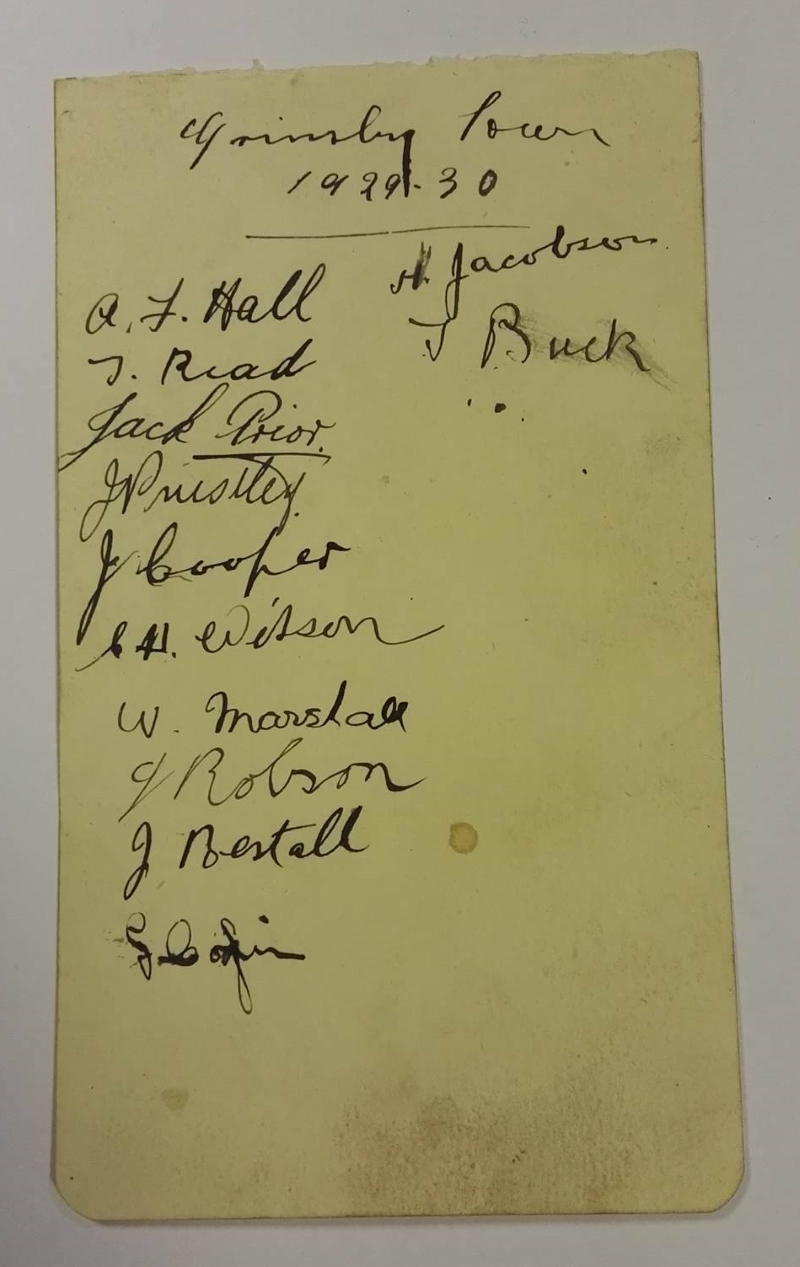 Grimsby Town
1929-30
A. F. Hall
T. Read
Jack Prior.
J Priestley
J Cooper
C. H. Wilson
W. Marshall
J Robson
J Bestall
H. Jacobson
T Buck